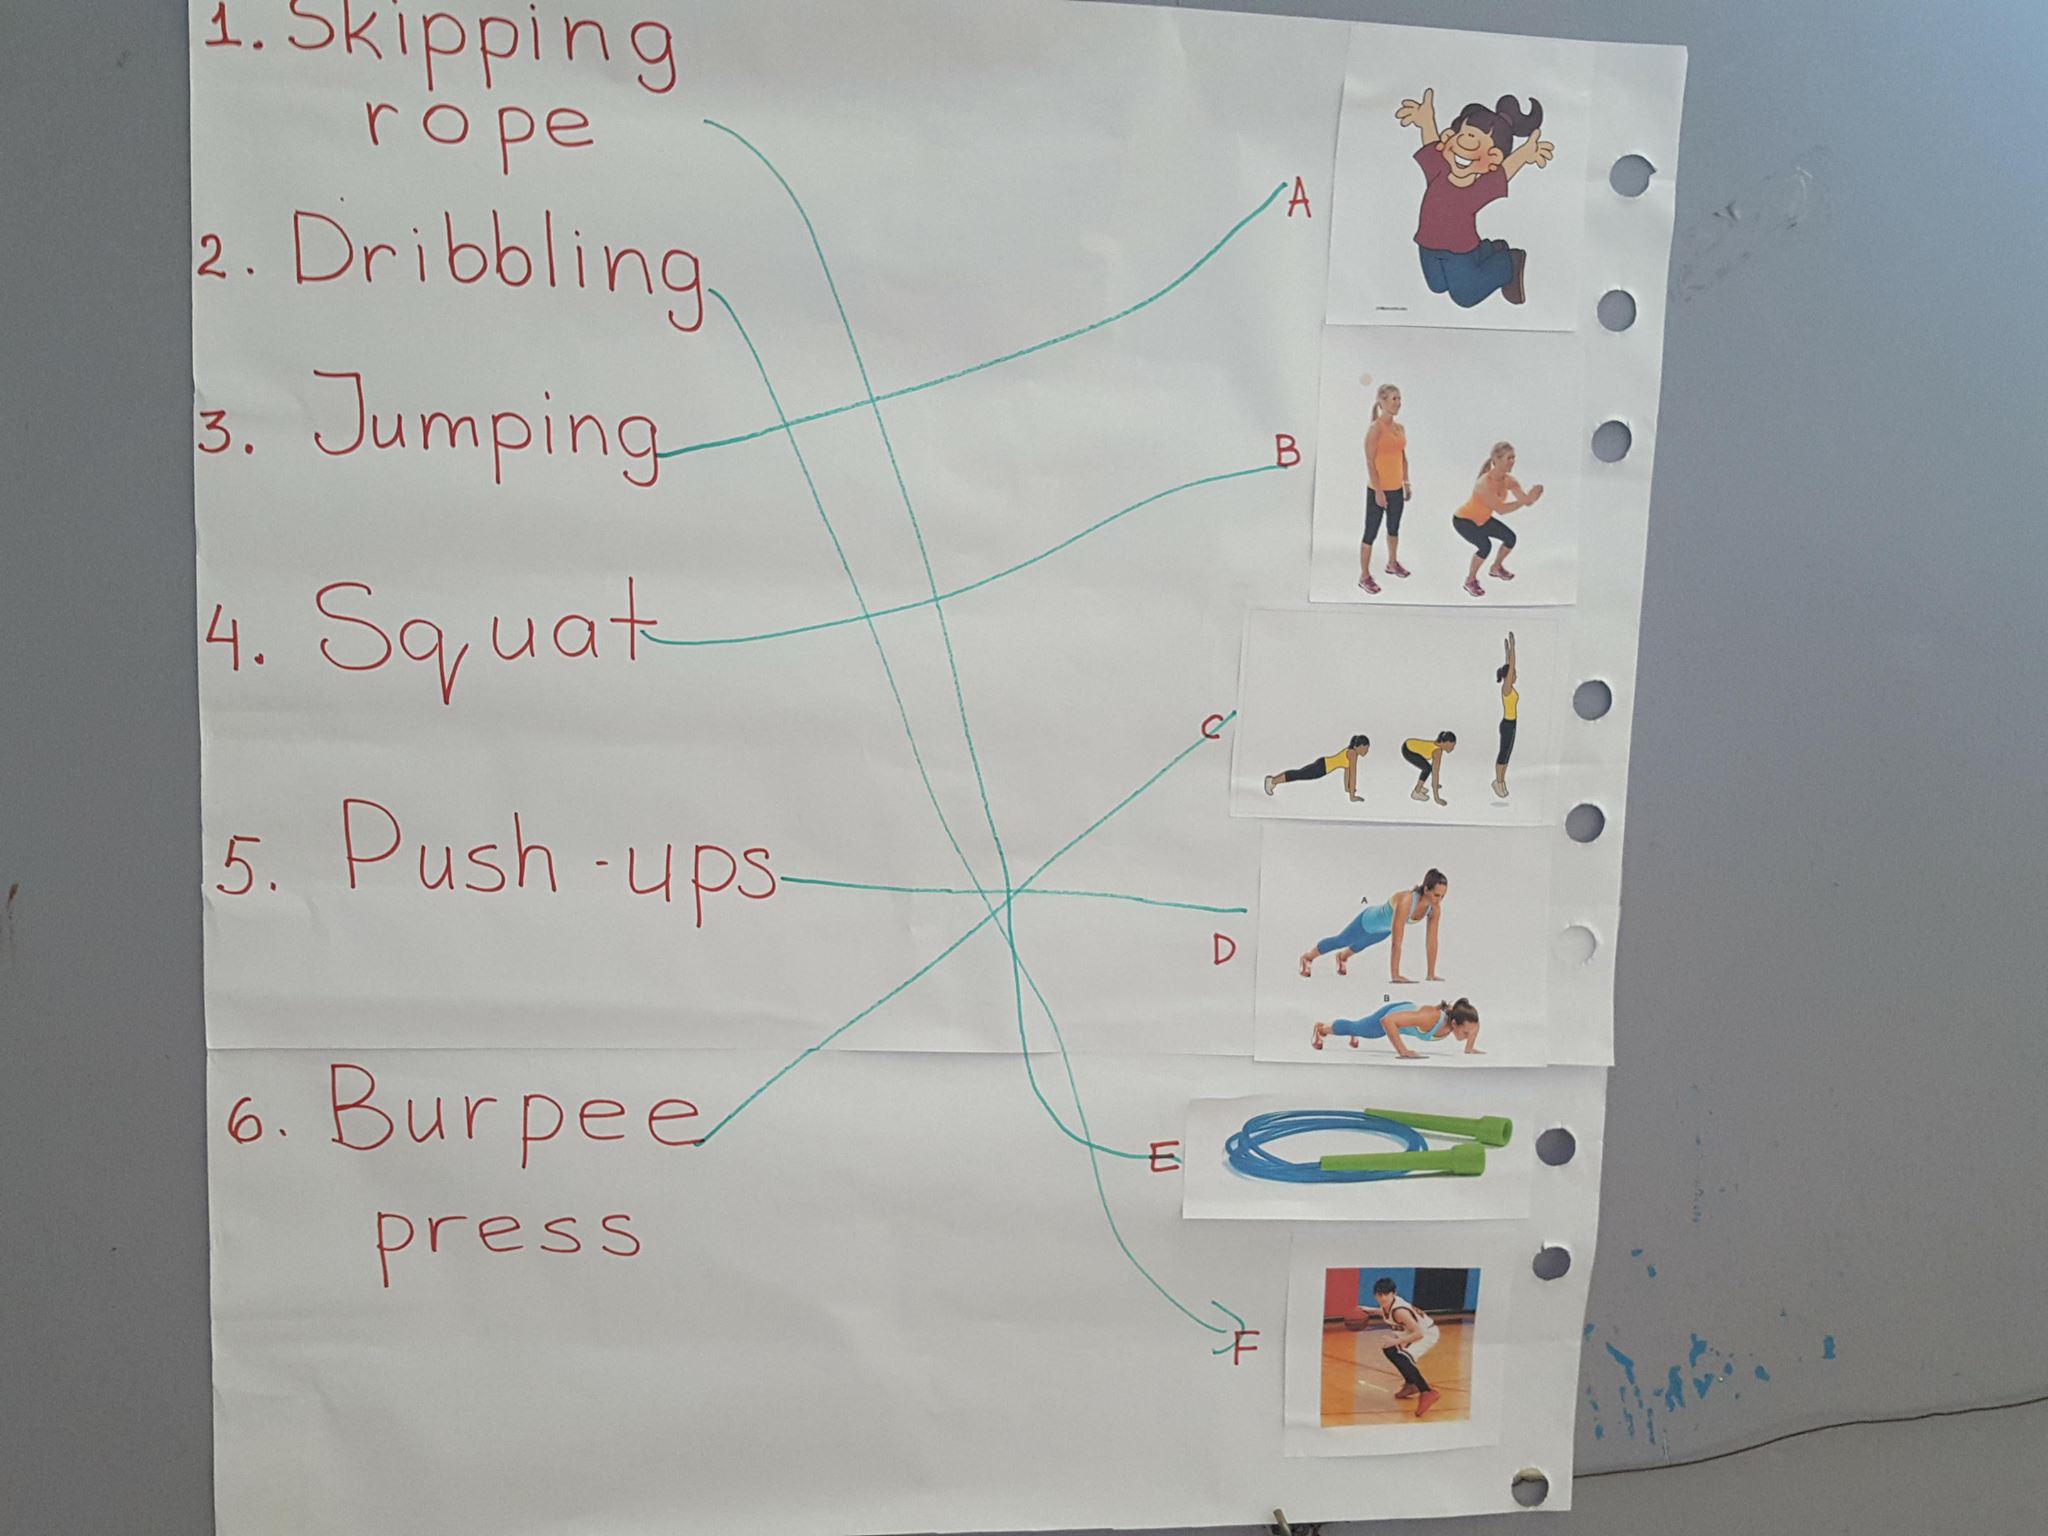 1. Skipping
rope
2. Dribbling
3. Jumping
4. Squat
5. Push-ups
6. Burpee
press
A
B
C
D
A
B
E
F